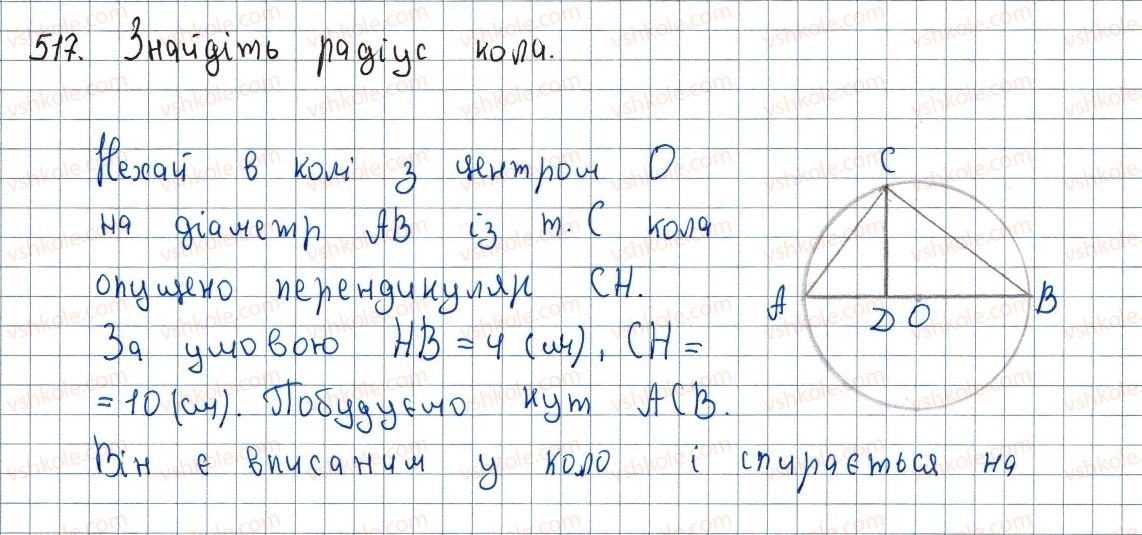 517. Знайдіть радіус кола.
Нехай в колі з центром О
на діаметр АВ із т. С кола
опущено перпендикуляр СН.
За умовою НВ = 4 (см), СН =
= 10 (см). Побудуємо кут АСВ.
Він є вписаним у коло і спирається на
C
A
D O
B
vshkole.com